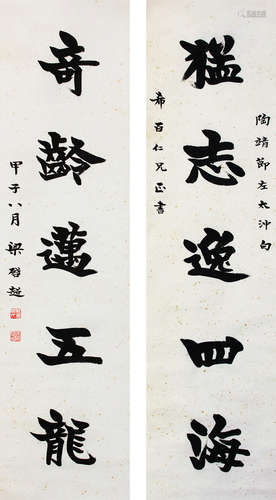 陶靖節左太沖句
猛志逸四海
希百仁兄正書
竒齡邁五龍
甲子八月 梁啓超